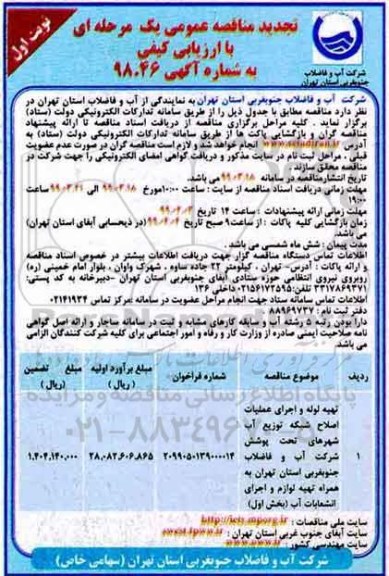 نوبت اول
تجدید مناقصه عمومی یک مرحله ای
با ارزیابی کیفی
به شماره آگهی ۹۸.۴۶
شرکت آب و فاضلاب
جنوبغربی استان تهران
شرکت آب و فاضلاب جنوبغربی استان تهران به نمایندگی از آب و فاضلاب استان تهران در
نظر دارد مناقصه مطابق با جدول ذیل را از طریق سامانه تدارکات الکترونیکی دولت (ستاد)
برگزار نماید . کلیه مراحل برگزاری مناقصه از دریافت اسناد مناقصه تا ارائه پیشنهاد
مناقصه گران و بازگشایی پاکت ها از طریق سامانه تدارکات الکترونیکی دولت (ستاد) به
آدرس www.setadiran.ir انجام خواهد شد و لازم است مناقصه گران در صورت عدم عضویت
قبلی ، مراحل ثبت نام در سایت مذکور و دریافت گواهی امضای الکترونیکی را جهت شرکت در
مناقصه محقق سازند .
تاریخ انتشار مناقصه در سامانه ۹۹.۰۳.۱۸ می باشد.
مهلت زمانی دریافت اسناد مناقصه از سایت : ساعت ۱۰:۰۰ مورخ ۹۹.۰۳.۱۸ الی ۹۹.۰۳.۲۱ ساعت
۱۹:۰۰
مهلت زمانی ارائه پیشنهادات : ساعت ۱۴ تاریخ
زمان بازگشایی کلیه پاکات : از ساعت ۹ صبح تاریخ (در ذیحسابی آبفای استان تهران)
می باشد.
مدت پیمان : شش ماه شمسی می باشد .
اطلاعات تماس دستگاه مناقصه گزار جهت دریافت اطلاعات بیشتر در خصوص اسناد مناقصه
و ارائه پاکات : آدرس- تهران ، کیلومتر ۲۲ جاده ساوه ، شهرک واوان ، بلوار امام خمینی (ره)
روبروی نیروی انتظامی حوزه ستادی آبفای جنوبغربی استان تهران -دبیرخانه به کد پستی:
۳۳۱۷۸۶۹۴۷۱ تلفن: ۰۲۱۵۶۱۷۲۵۹۵ داخلی ۱۳۶
اطلاعات تماس سامانه ستاد جهت انجام مراحل عضویت در سامانه :مرکز تماس ۰۲۱۴۱۹۳۴
دفتر ثبت نام : ۸۸۹۶۹۷۳۷
دارا بودن رتبه ۵ رشته آب و سابقه کارهای مشابه و ثبت در سامانه ساجار و ارائه اصل گواهی
نامه صلاحیت ایمنی صادره از وزارت کار و رفاه و امور اجتماعی برای کلیه شرکت کنندگان الزامی
می باشد.
ردیف موضوع مناقصه شماره فراخوان مبلغ برآورد اولیه (ریال) مبلغ تضمین (ریال)
۱ تهیه لوله و اجرای عملیات
اصلاح شبکه توزیع آب
شهرهای تحت پوشش
شرکت آب و فاضلاب
جنوبغربی استان تهران به
همراه تهیه لوازم و اجرای
انشعابات آب (بخش اول)
۲۰۹۹۰۵۰۱۳۹۰۰۰۰۱۴ ۲۸,۰۸۲,۶۰۶,۸۶۵ ۱,۴۰۴,۱۴۰,۰۰۰
سایت ملی مناقصات : http://iets.mporg.ir
سایت آبفای جنوب غربی استان تهران :
سایت مهندسی کشور :
شرکت آب و فاضلاب جنوبغربی استان تهران (سهامی خاص)
۰۲۱-۸۸۳۴۹۶۷۰